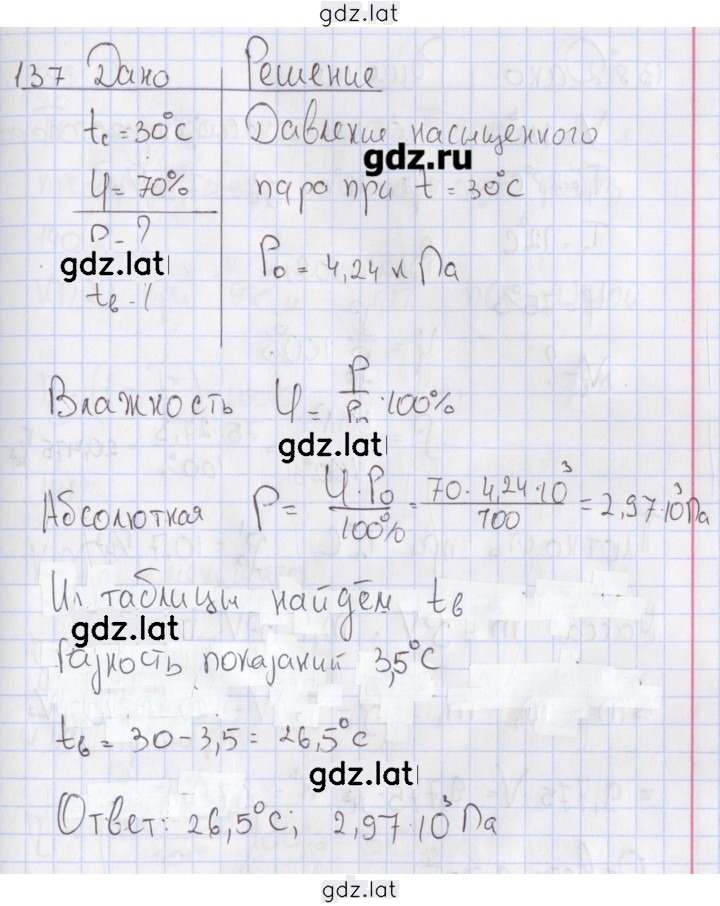 gdz.lat
137 Дано Решение
tс = 30°C Давление насыщенного
gdz.ru
φ = 70% пара при t = 30°C
P - ?
gdz.lat P₀ = 4,24 к Па
tв - ?
Влажность φ = P/P₀ · 100%
gdz.lat
Абсолютная P = φ · P₀/100% = 70 · 4,24 · 10³/700 = 2,97 · 10³ Па
Из таблицы найдём tв
gdz.lat
Разность показаний 3,5°C
tв = 30 - 3,5 = 26,5°C
gdz.lat
Ответ: 26,5°C; 2,97 · 10³ Па
gdz.lat